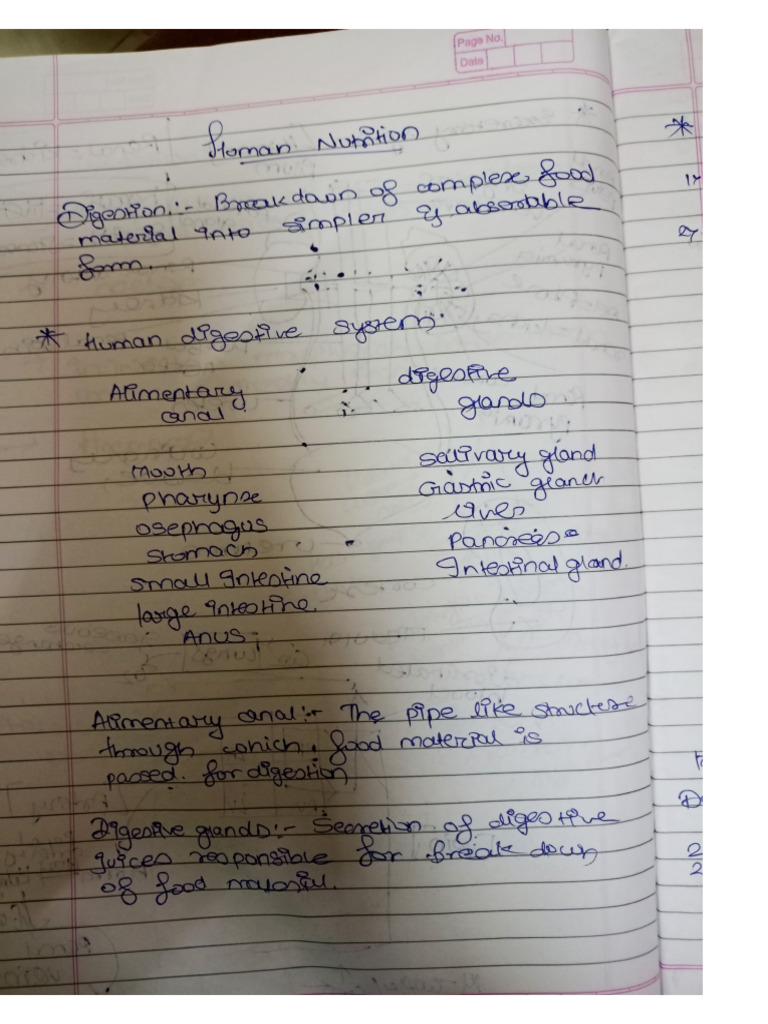 Page No.
Date
Human Nutrition
Digestion:- Breakdown of complex food
material into simpler & absorbable
form.
* Human digestive system.
Alimentary
canal
digestive
glands
Mouth
Pharynx
osephagus
Stomach
Small Intestine
large intestine.
Anus
Sallivary gland
Gastric gland
Liver
Pancreas
Intestinal gland.
Alimentary canal:- The pipe like structure
through which food material is
passed. for digestion
Digestive glands:- Secretion of digestive
juices responsible for Break down
of food material.